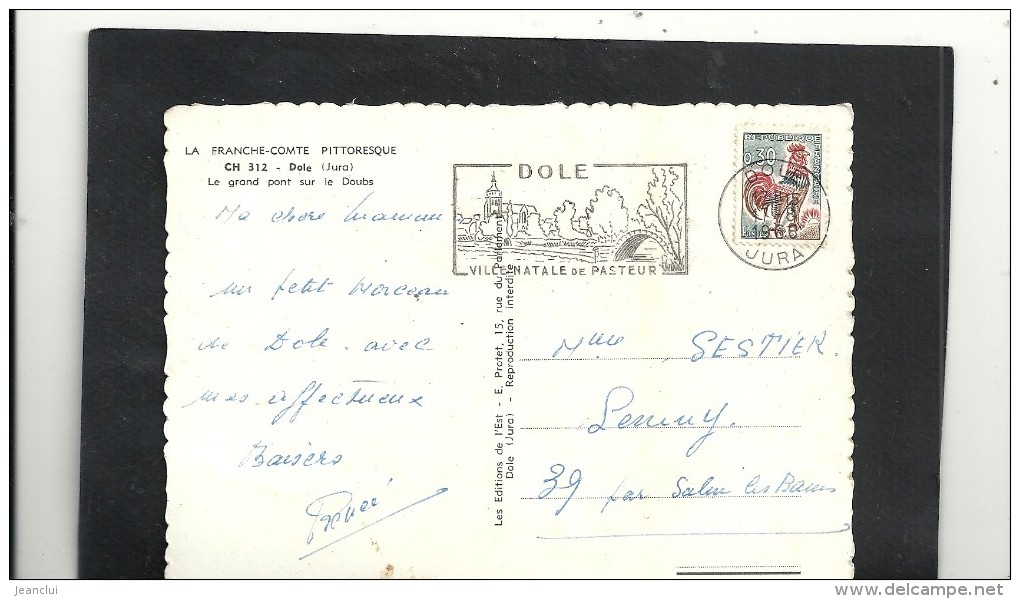 LA FRANCHE-COMTE PITTORESQUE
CH 312 - Dole (Jura)
Le grand pont sur le Doubs
Ma chère maman
un petit morceau
de Dole avec
mes affectueux
Baisers
Les Editions de l'Est - E. Protet, 15, rue du Parlement
Dole (Jura) - Reproduction interdite
DOLE
VILLE NATALE DE PASTEUR
REPUBLIQUE FRANCAISE
0,30
JURA
Mme SESTIER.
Lemuy.
39 par Salin les Bains
jeanclui
delcampe.net